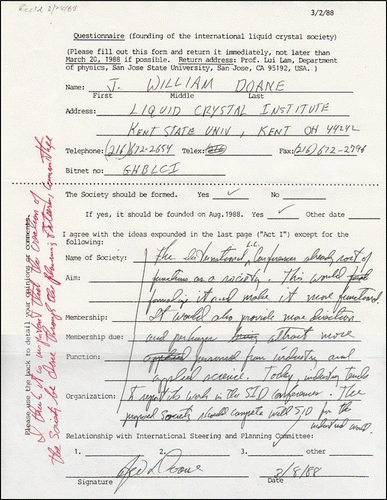 Rec'd 2/24/88
3/2/88
Questionnaire (founding of the international liquid crystal society)
(Please fill out this form and return it immediately, not later than
March 20, 1988 if possible. Return address: Prof. Lui Lam, Department
of physics, San Jose State University, San Jose, CA 95192, USA. )
Name: J. WILLIAM DOANE
First Middle Last
Address: LIQUID CRYSTAL INSTITUTE
KENT STATE UNIV, KENT OH 44242
Telephone: (216) 672-2654 Telex: Fax: (216) 672-2796
Bitnet no: GHBLCI
The Society should be formed. Yes ✓ No
If yes, it should be founded on Aug.1988. Yes ✓ Other date
I agree with the ideas expounded in the last page ("Act I") except for the
following:
Name of Society: The International L.C. Conference already sort of
Aim: functions as a society. This would
formalize it and make it more functional.
Membership: It would also provide more direction
Membership due: and perhaps attract more
Function: personnel from industry and
applied science. Today, industry tends
Organization: to report its work in the SID conference. The
proposed society should compete with SID for the
industrial work.
Relationship with International Steering and Planning Committee:
1. 2. 3. other
J. W. Doane 2/8/88
Signature Date
Please use the back to detail your opinions or comments.
I think it is important that the creation of
the Society be done through the planning & steering committee